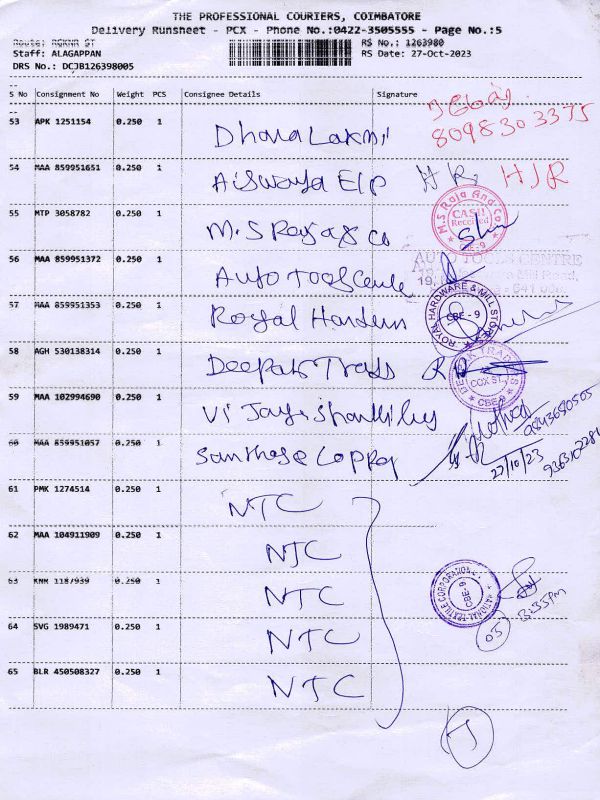 THE PROFESSIONAL COURIERS, COIMBATORE
Delivery Runsheet - PCX - Phone No.:0422-3505555 - Page No.:5
Route: RGKNR ST
RS No.: 1263980
Staff: ALAGAPPAN
RS Date: 27-Oct-2023
DRS No.: DCJB126398005
S No Consignment No Weight PCS Consignee Details Signature
53 APK 1251154 0.250 1 Dhana Lakmi
8098303375
54 MAA 859951651 0.250 1 Aiswaya E/p HR, HJR
55 MTP 3058782 0.250 1 M.S Raja & Co
M.S Raja And Co
CASH
Received
CBE-9
56 MAA 859951372 0.250 1 Auto Tools Cente
AUTO TOOLS CENTRE
57 MAA 859951353 0.250 1 Royal Hardern
ROYAL HARDWARE & MILL STORES
CBE - 9
58 AGH 530138314 0.250 1 Deepak Trads
DEEPAK TRADES
COX ST.
CBE-9
59 MAA 102994690 0.250 1 Vijay
9843680505
60 MAA 859951057 0.250 1 Santhose Copper
27/10/23
61 PMK 1274514 0.250 1 NTC
62 MAA 104911909 0.250 1 NTC
63 KNR 1187939 0.250 1 NTC
NATIONAL TEXTILE CORPORATION
CBE-9
05
3:35pm
64 SVG 1989471 0.250 1 NTC
65 BLR 450508327 0.250 1 NTC